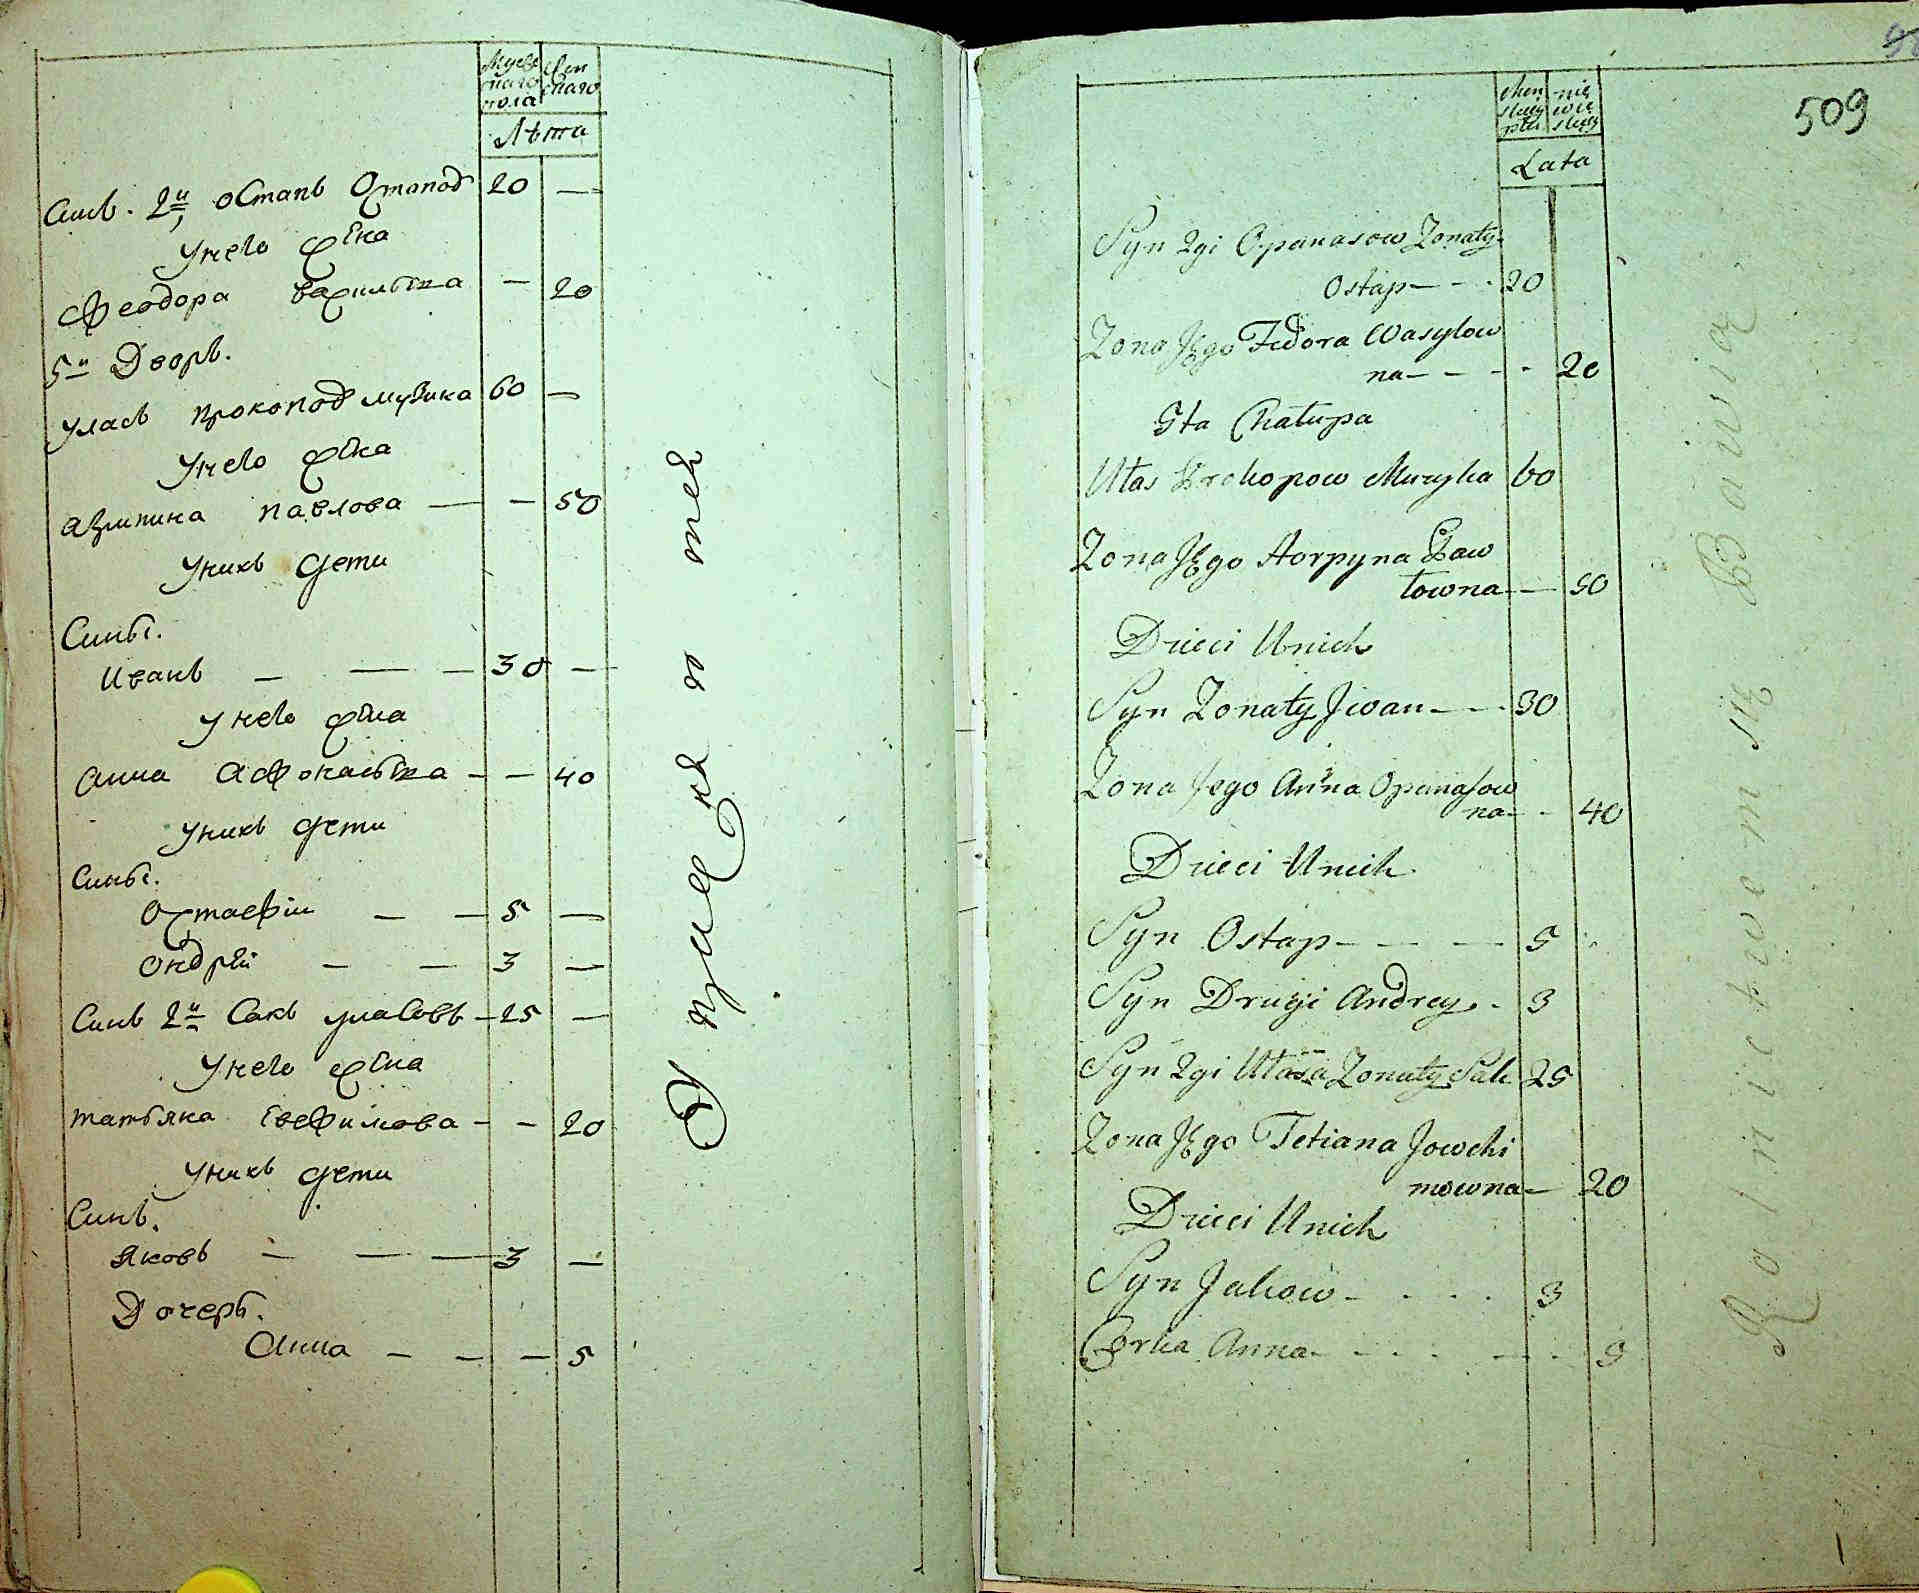 Муже
скаго
пола
Жен
скаго
Лѣта
Синъ. 2й, Остапъ 20 —
У него жена
Феодора Василевна — 20
5й Дворъ.
Уласъ Прокопов Музика 60 —
У него жена
Агрипина Павлова — — 50
У нихъ дети
Сины.
Иванъ — — — 30 —
У него жена
Анна Афонасевна — — 40
У нихъ дети
Сины.
Остафiи — — 5 —
Ондрѣй — — 3 —
Синъ 2й Сакъ Уласовъ — 25 —
У него жена
Татьяна Евфимова — — 20
У нихъ дети
Синъ.
Яковъ — — — 3 —
Дочерь.
Анна — — — 5
509
Męn
skiey
płci
nie
wie
skiey
Lata
Syn 2gi Opanasow Żonaty
Ostap — - - 20
Zona Jego Fedora Wasylow
na — - - - 20
5ta Chałupa
Ułas Prokopow Muzyka 60
Zona Jego Horpyna Paw
łowna — — 50
Dzieci Unich
Syn Zonaty Jwan - - - 30
Zona Jego Anna Opanasow
na — - 40
Dzieci Unich
Syn Ostap — — — 5
Syn Drugi Andrey - 3
Syn 2gi Ułasa Zonaty Sak 25
Zona Jego Tetiana Jowchi
mowna — 20
Dzieci Unich
Syn Jakow - - - - 3
Corka Anna - - - - — - 5
Rolnictwem się Bawią